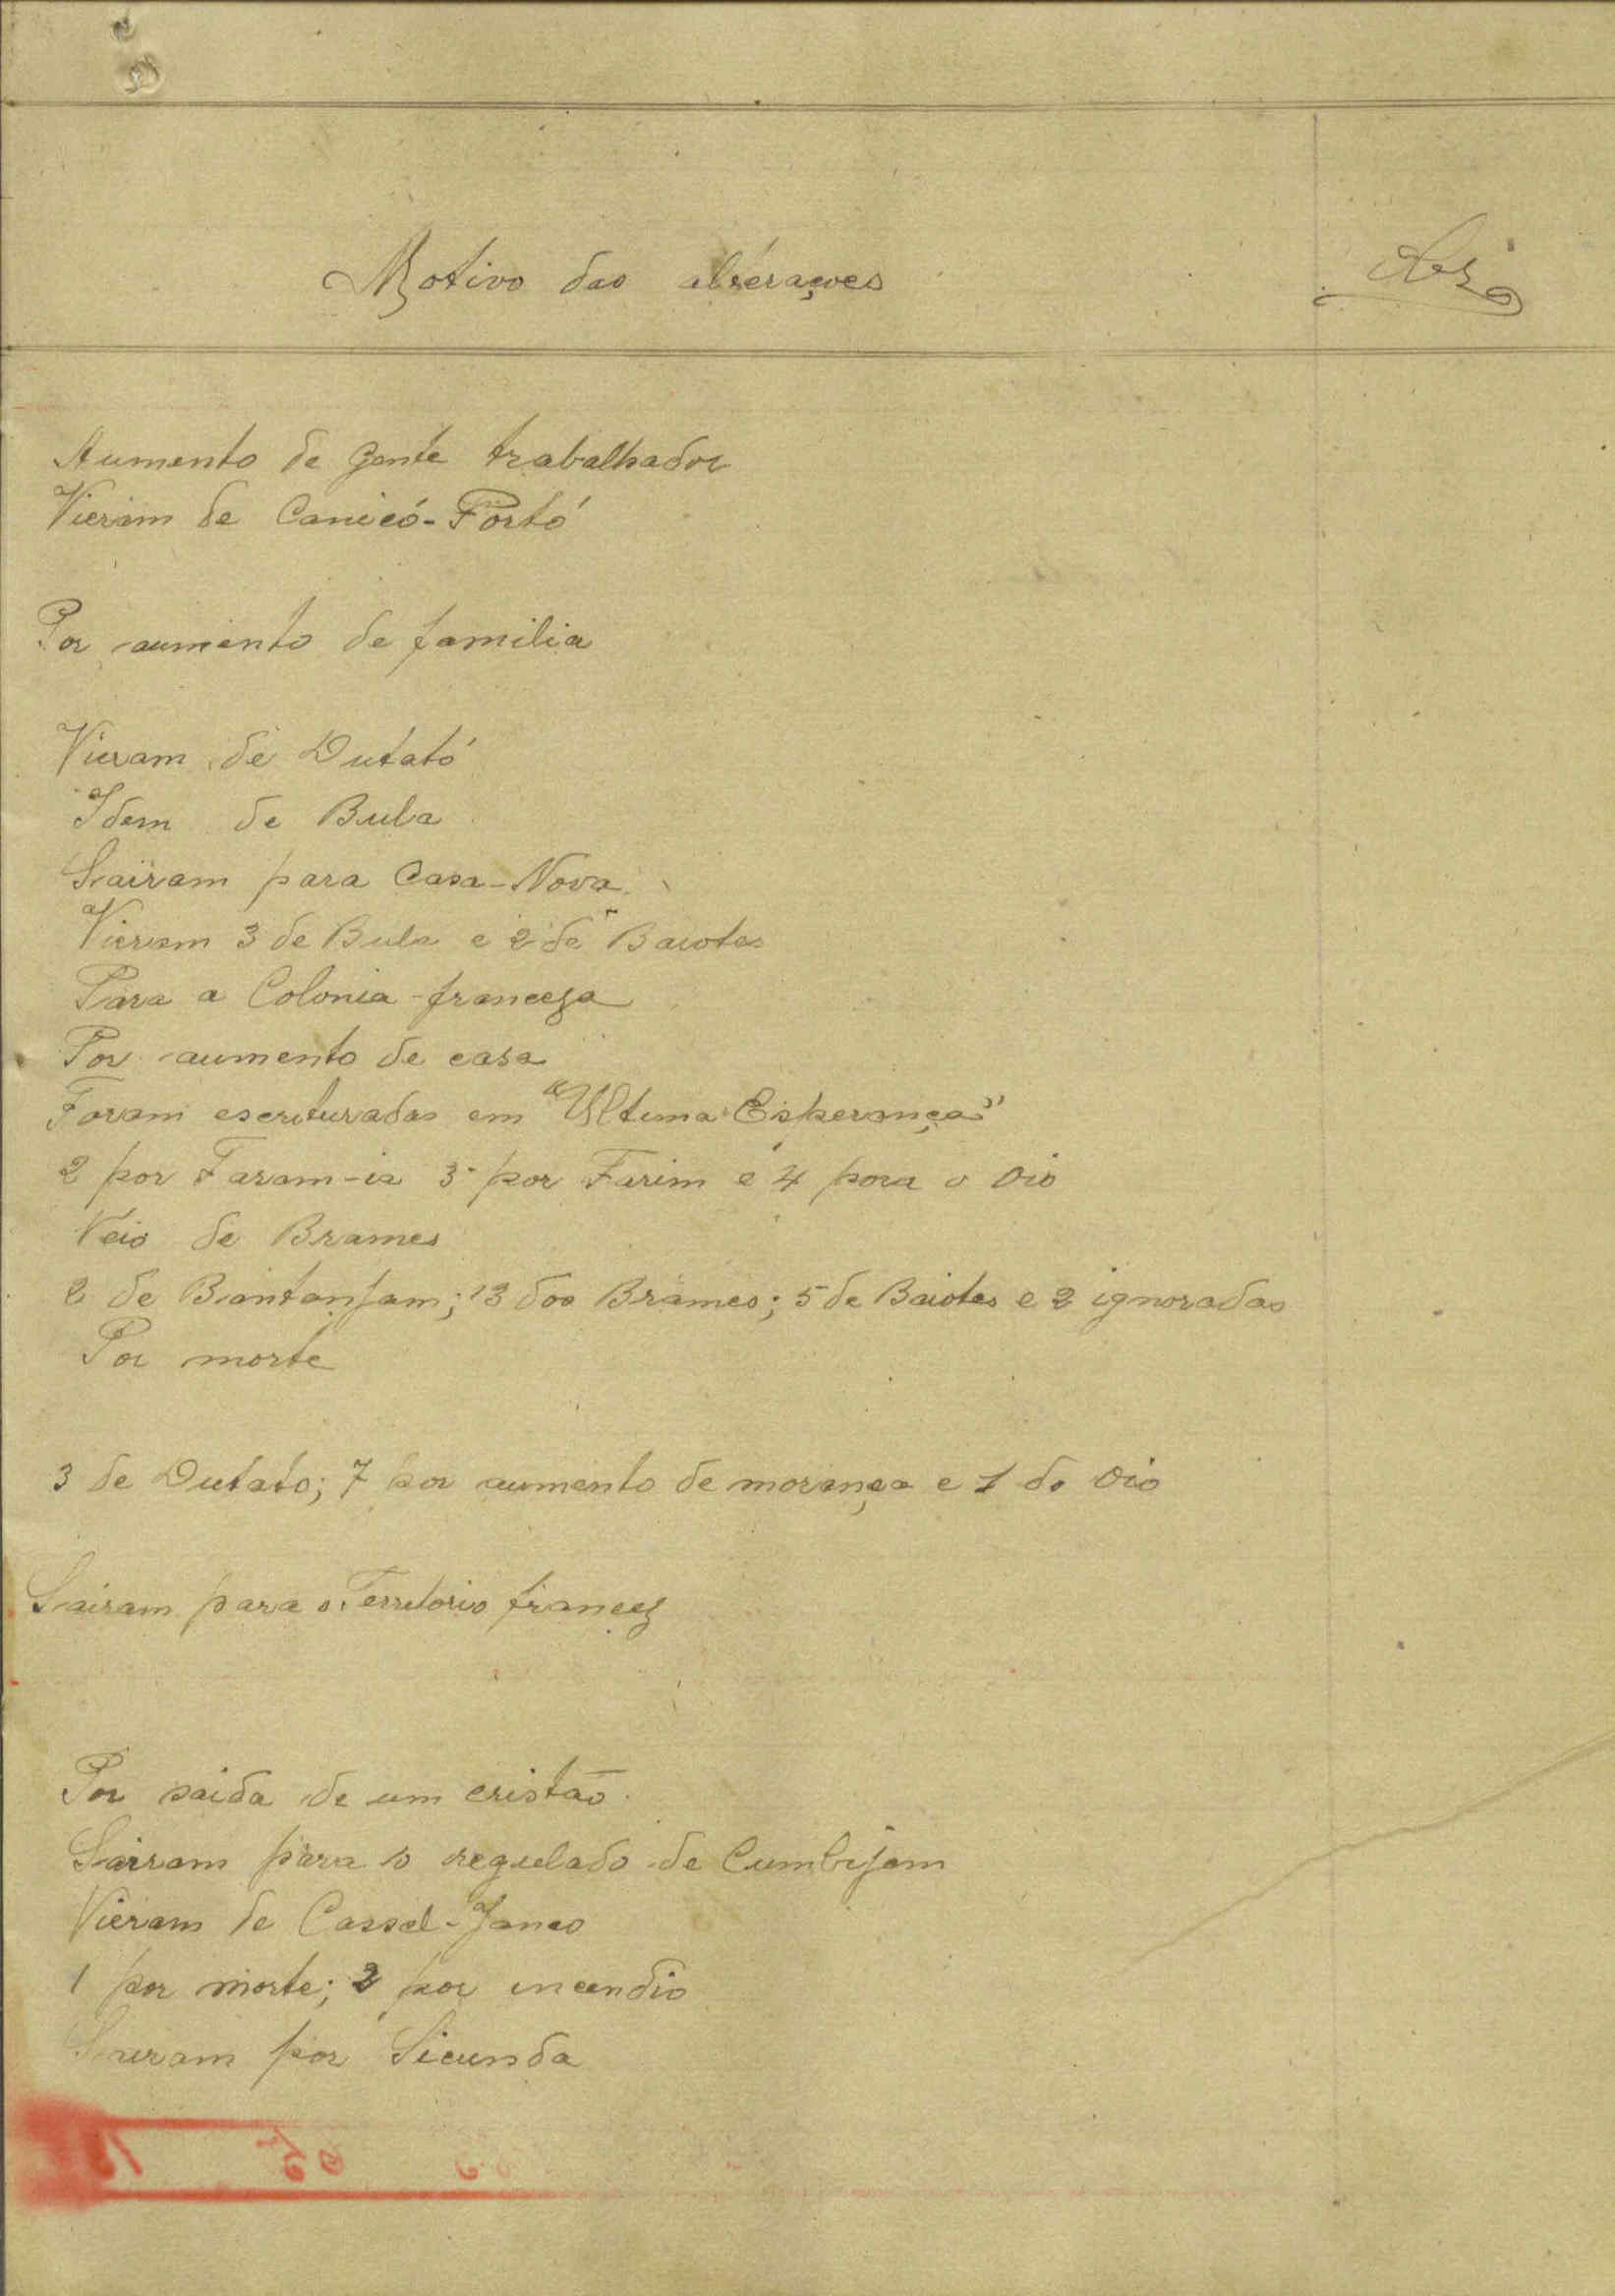 Motivo das alterações
Aumento de gente trabalhador
Vieram de Canicó-Portó
Por aumento de familia
Vieram de Dutató
Idem de Bula
Saíram para Casa-Nova
Vieram 3 de Bula e 2 de Baiotes
Para a Colonia-franceza
Por aumento de casa
Foram escrituradas em "Ultima Esperança"
2 por Faram-ia 3 por Farim e 4 para o Oio
Veio de Brames
2 de Biantanjam; 13 dos Brames; 5 de Baiotes e 2 ignoradas
Por morte
3 de Dutató; 7 por aumento de morança e 1 do Oio
Sairam para o Territorio francez
Por saida de um cristão.
Sairam para o regulado de Cumbijam
Vieram de Cassel-Janco
1 por morte; 2 por incendio
Sairam por Sicunda